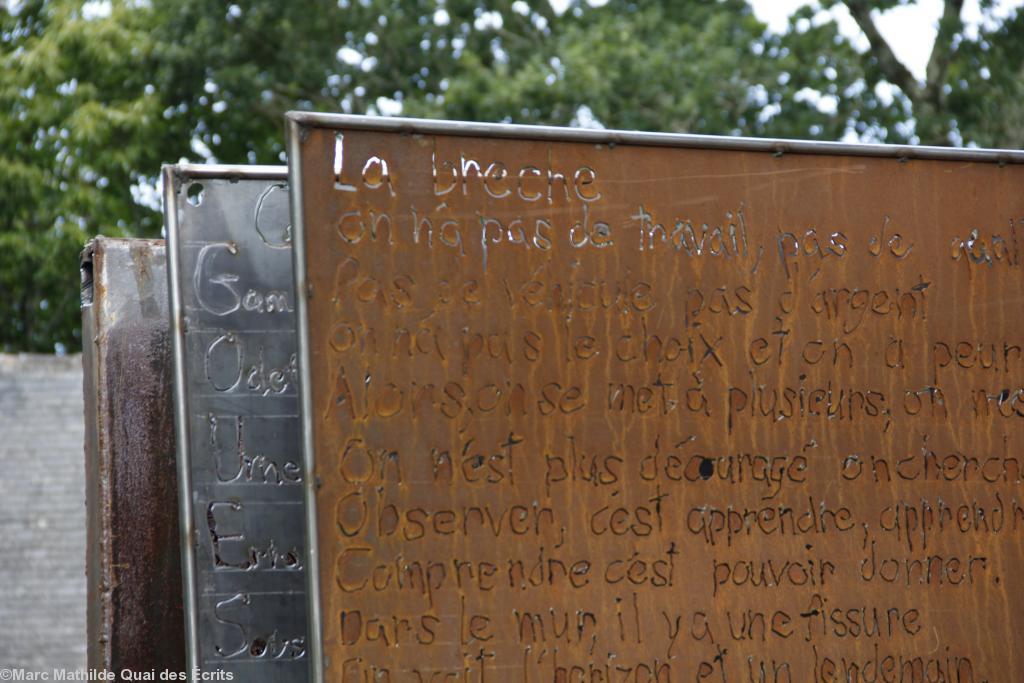 La breche
on n'a pas de travail, pas de
Pas de véhicule pas d'argent
on n'a pas le choix et on a peur
Alors, on se met à plusieurs, on
On n'est plus décuragé on cherch
Observer, c'est apprendre, apprendr
Comprendre c'est pouvoir donner.
Dans le mur, il y a une fissure
On voit l'horizon et un lendemain
C
Gam
Odet
Urne
S
©Marc Mathilde Quai des Ecrits